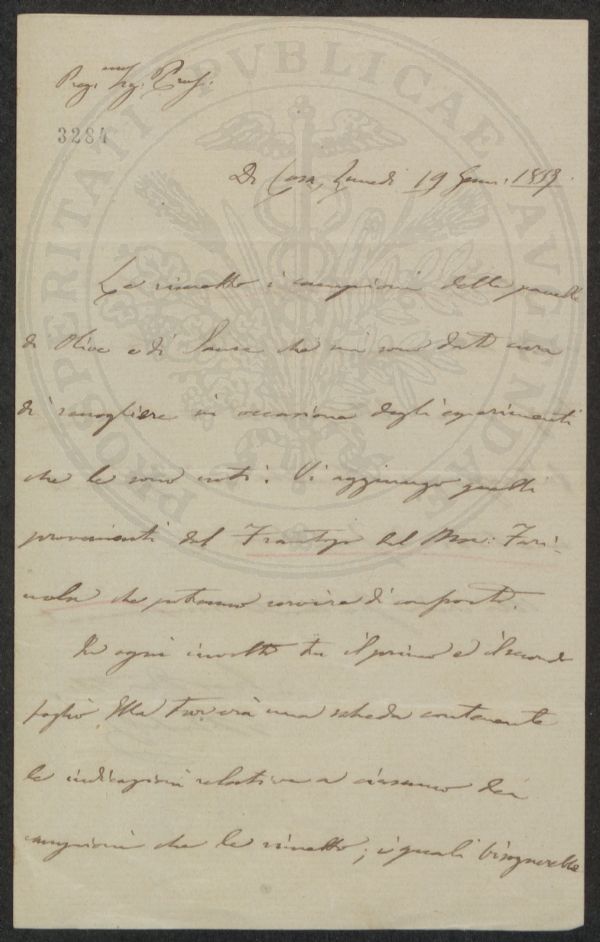 Preg.mo Sig. Prof.
3284
Di Casa, Lunedì 19 Genn. 1857.
Le rimetto i campioni delle panelle
di Olive e di Sansa che mi sono dato cura
di raccogliere in occasione degli esperimenti
che le sono noti. Vi aggiungo quelli
provenienti dal Frantojo del Mse. Fari-
nola che potranno servire di confronto.
In ogni involto tra il primo e il secondo
foglio Ella troverà una scheda contenente
le indicazioni relative a ciascuno dei
campioni che le rimetto; i quali bisognerebbe
PROSPERITATI PUBLICAE AUGENDAE